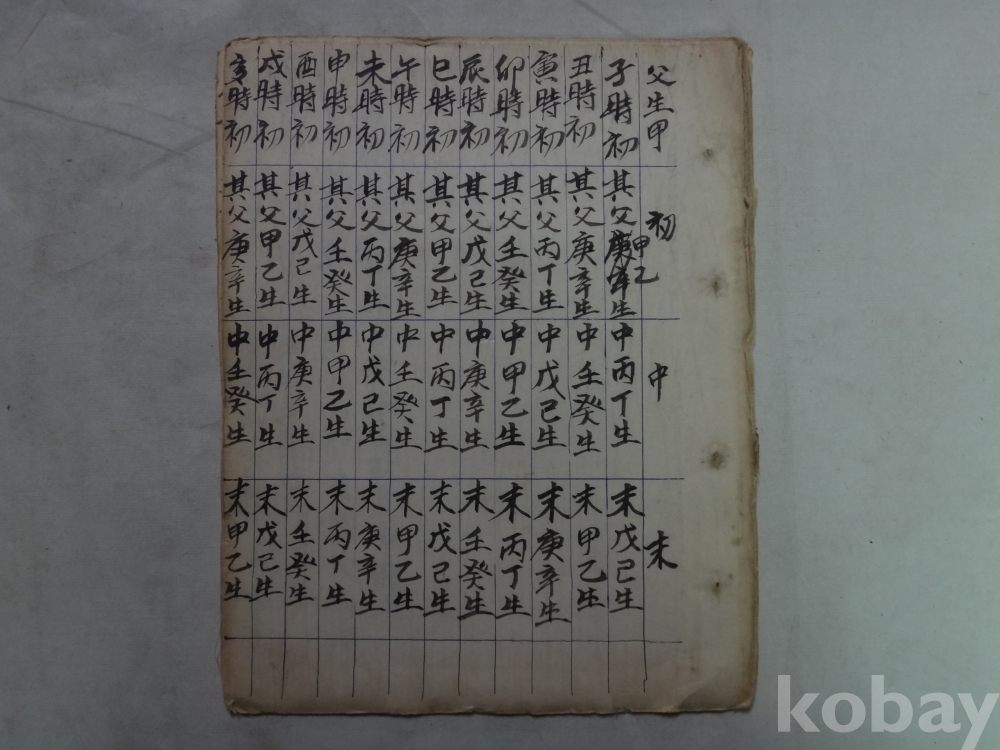 父生甲 初 中 末
子時初 其父庚辛生 甲乙 中丙丁生 末戊己生
丑時初 其父庚辛生 中壬癸生 末甲乙生
寅時初 其父丙丁生 中戊己生 末庚辛生
卯時初 其父壬癸生 中甲乙生 末丙丁生
辰時初 其父戊己生 中庚辛生 末壬癸生
巳時初 其父甲乙生 中丙丁生 末戊己生
午時初 其父庚辛生 中壬癸生 末甲乙生
未時初 其父丙丁生 中戊己生 末庚辛生
申時初 其父壬癸生 中甲乙生 末丙丁生
酉時初 其父戊己生 中庚辛生 末壬癸生
戌時初 其父甲乙生 中丙丁生 末戊己生
亥時初 其父庚辛生 中壬癸生 末甲乙生
kobay